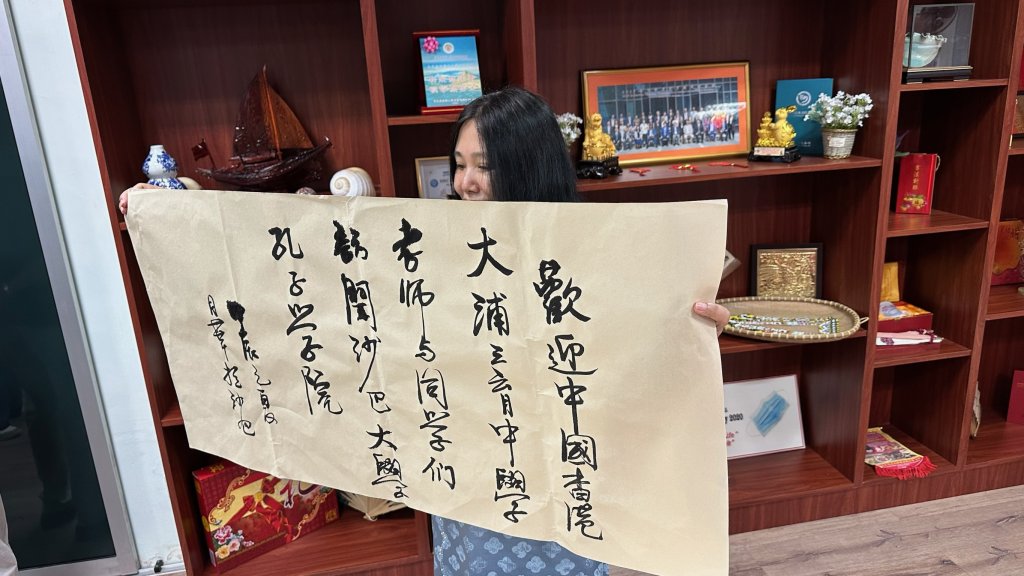 歡迎中國香港
大浦三育中學
老師与同学们
訪問沙巴大學
孔子学院
辰之夏
月華於沙巴
2020